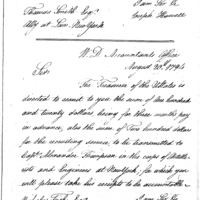 I am Sir &c.
Thomas Smith Esqr. Joseph Howell
Atty at Law New York
W. D. Accountants Office
August 30th, 1794
Sir
The Treasurer of the U States is
directed to remit to you the sum of One hundred
and twenty dollars, being for three months pay
in advance, also the sum of Two hundred dollars
for the recruiting service, to be transmitted to
Capt. Alexander Thompson in the corps of Artille-
rists and Engineers at New York, for which you
will please take his receipts to be accountable
I am Sir &c.